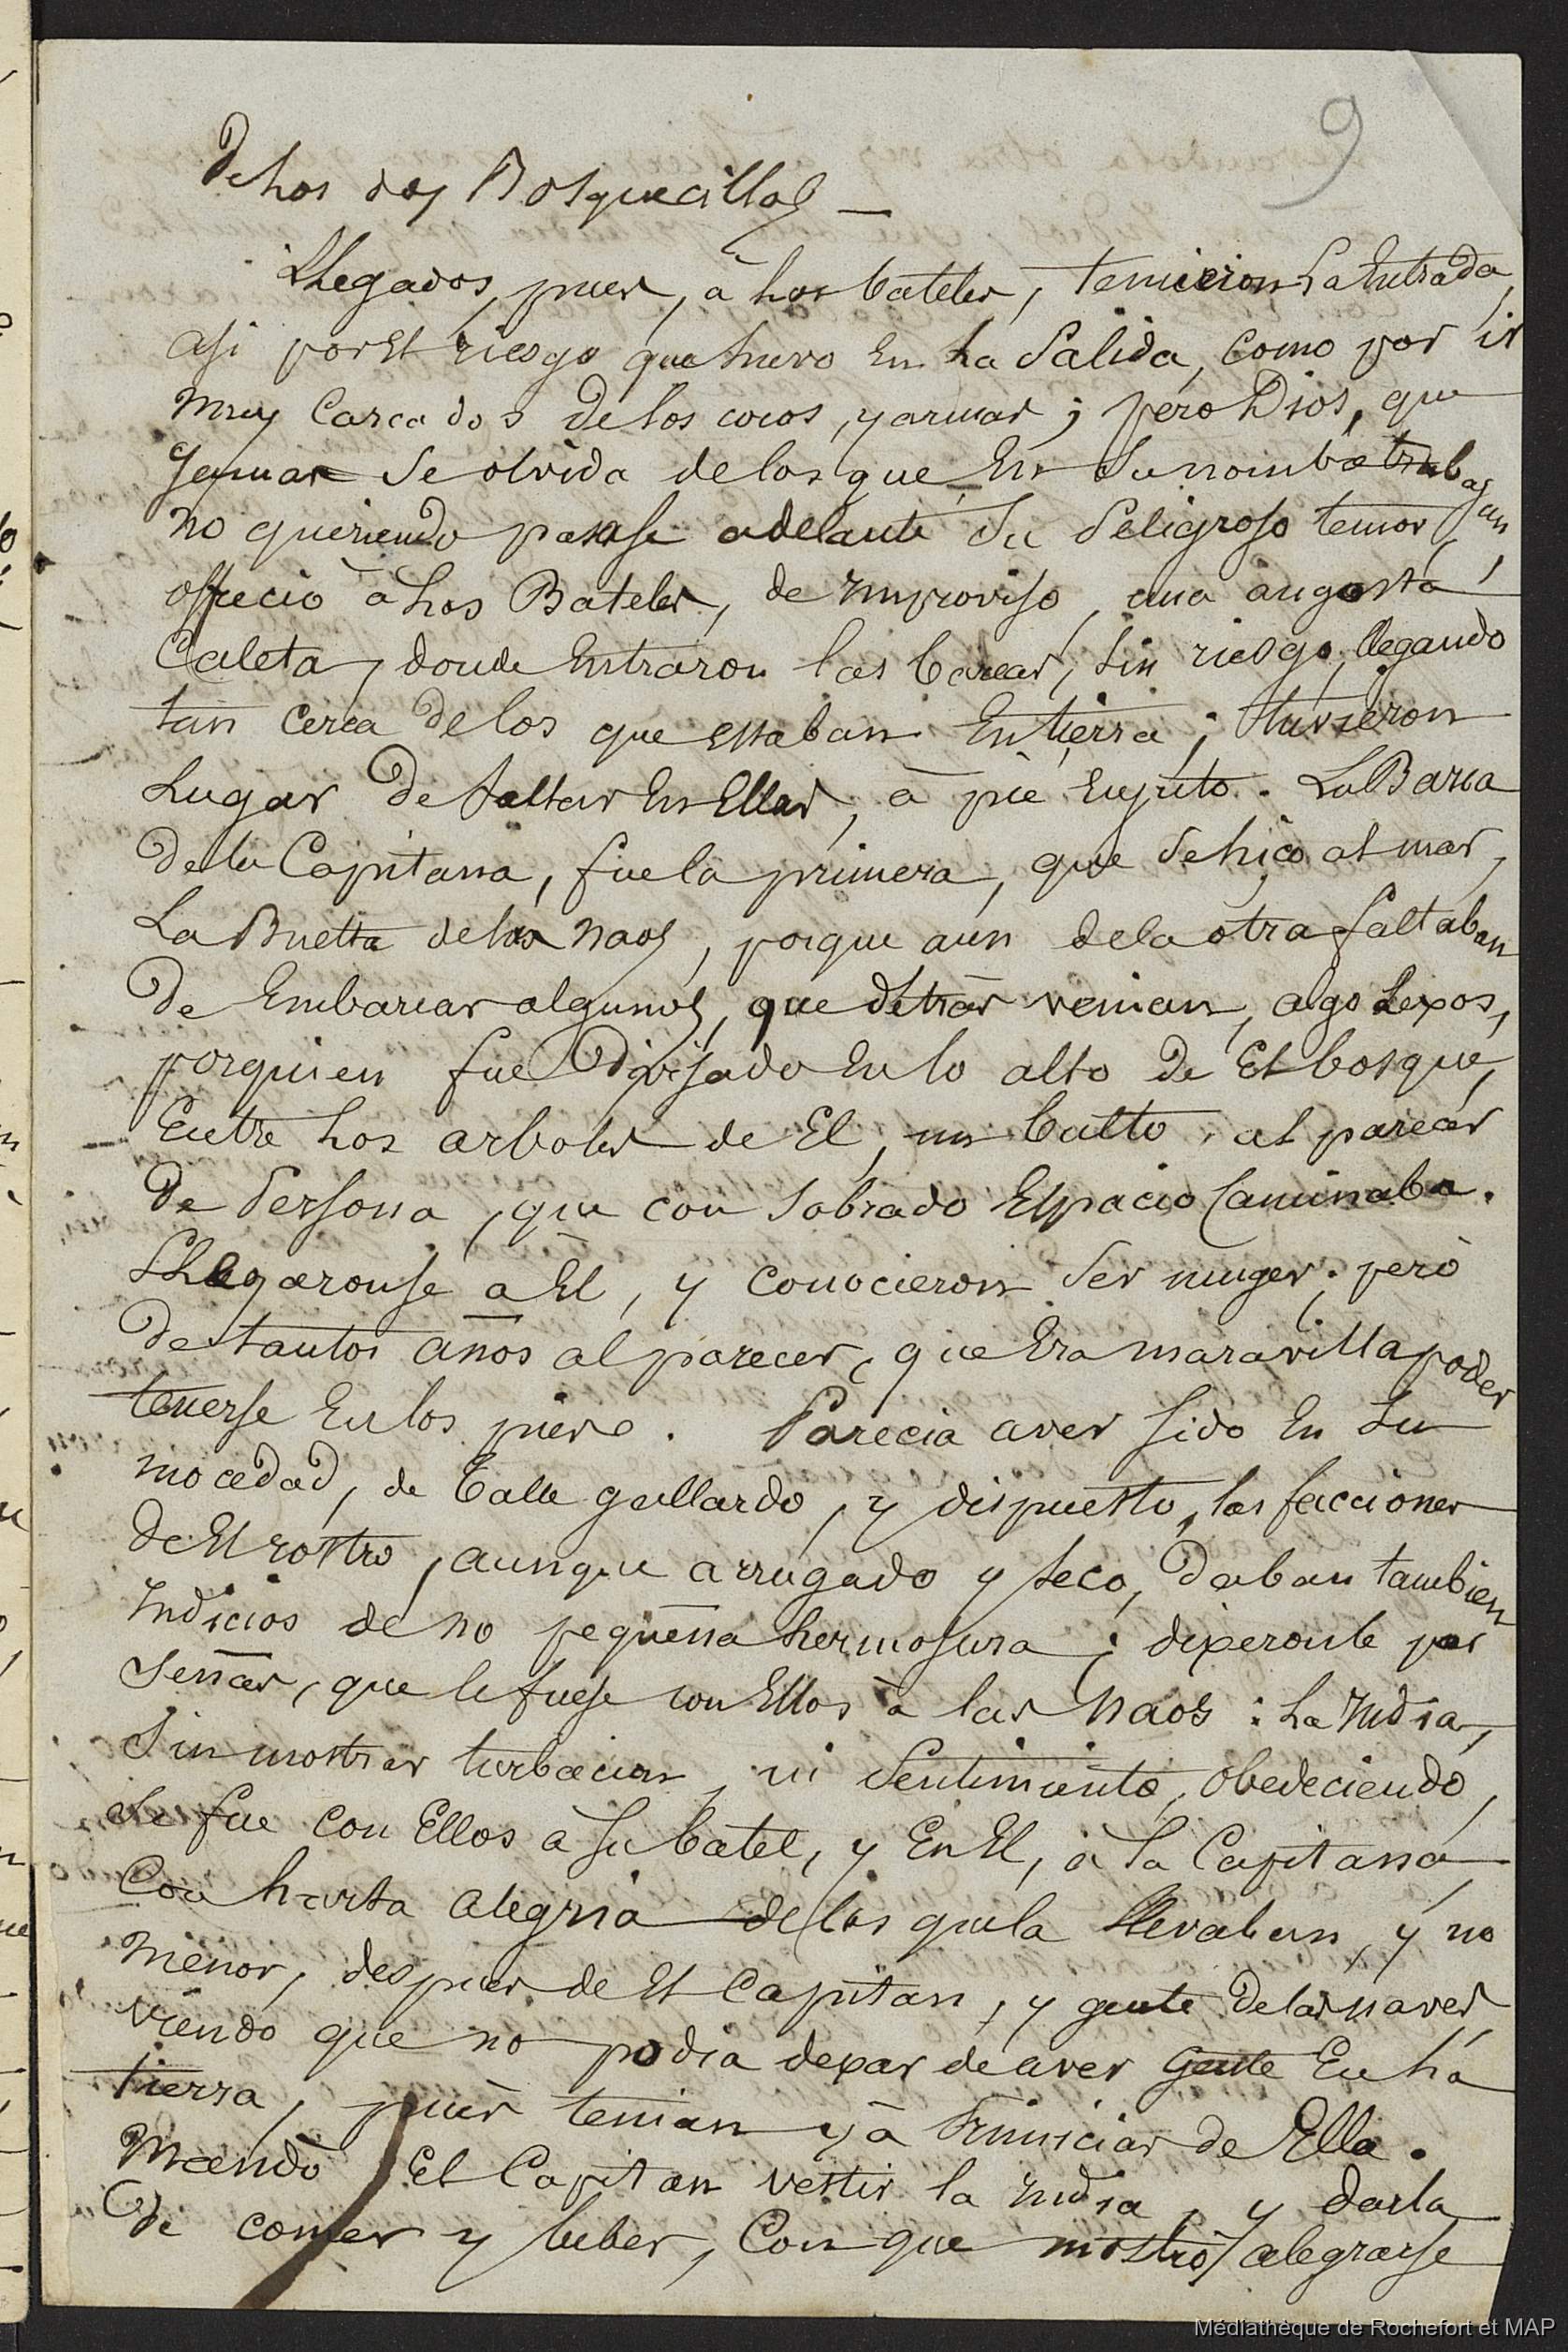 9
de los dos Bosquecillos —
Llegados, pues, à los bateles, temieron la Entrada,
asi por El riesgo que huvo En la Salida, como por ir
muy Cargados de los cocos, y armas; pero Dios, que
jamas Se olvida de los que En Su nombre trabajan,
no queriendo pasase adelante Su Peligroso temor,
offreciò à los Bateles, de improviso, una angosta
Caleta, donde Entraron las barcas, Sin riesgo, llegando
tan cerca de los que estaban En tierra; tuvieron
Lugar de Saltar En Ellas, à piè Enjuto. La Barca
de la Capitana, fue la primera, que Se hiço al mar,
La Buelta de las naos, porque aun de la otra faltaban
de Embarcar algunos, que detràs venian, algo Lexos,
por quien fue Divisado En lo alto de El bosque,
Entre los arboles de El, un bulto, al parecer
de Persona, que con Sobrado Espacio Caminaba.
Llegaronse a El, y conocieron Ser muger; pero
de tantos años al parecer, que Era maravilla poder
tenerse En los pies. Parecia aver Sido En Su
mocedad, de talle gallardo, y dispuesto, las facciones
de El rostro, aunque arrugado y Seco, Daban tambien
Indicios de no pequeña hermosura; dixeronle por
Señas, que Se fuese con Ellos à las Naos: La India,
Sin mostrar turbacion, ni Sentimiento, obedeciendo,
Se fue con Ellos à Su batel, y En El, à la Capitana,
Con harta alegria de los que la llevaban, y no
menor, despues de El Capitan, y gente de las naves,
viendo que no podia dexar de aver gente En la
tierra, pues tenian yà primicias de Ella.
Mandò El Capitan vestir la India, y darla
de comer y beber, Con que mostrò alegrarse
Médiathèque de Rochefort et MAP